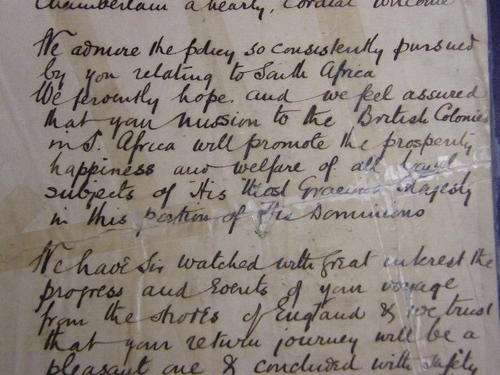 Chamberlain a hearly, cordial welcome
We admire the policy so consistently pursued
by you relating to South Africa
We fervently hope. and we feel assured
that your mission to the British Colonies
in S. Africa will promote the prosperity
happiness and welfare of all loyal
subjects of His Most Gracious Majesty
in this portion of His Dominions
We have Sir watched with great interest the
progress and Events of your voyage
from the shores of England & we trust
that your return journey will be a
pleasant one & concluded with safety